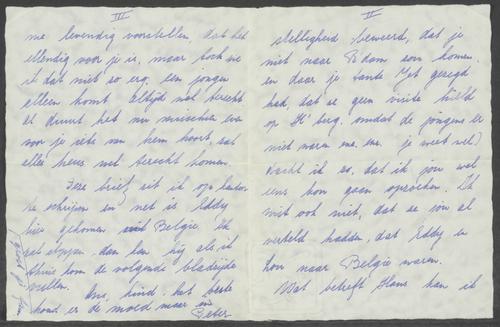 II
stelligheid beweerd, dat je
niet naar R'dam zou komen.
en daar je tante Jet gezegd
had, dat ze geen visite hield
op H'berg. omdat de jongens er
niet waren enz. enz. je weet wel)
dacht ik zo, dat ik jou wel
eens kon gaan opzoeken. Ik
wist ook niet, dat ze jou al
verteld hadden, dat Eddy en
hou naar België waren.
Wat betreft Hans kan ik
III
me levendig voorstellen, dat het
ellendig voor je is, maar toch vind
ik dat niet zo erg, een jongen
alleen komt altijd wel terecht
Het duurt het nu misschien even
voor je iets van hem hoort, zal
alles heus wel terecht komen.
Deze brief zit ik op kantoor
te schrijven en net is Eddy
hier gekomen uit België. Ik
zal stoppen, dan kan hij als ik
thuis kom de volgende bladzijde
vullen.
Nu, kind, het beste
houd er de moed maar in
Peter
groet je